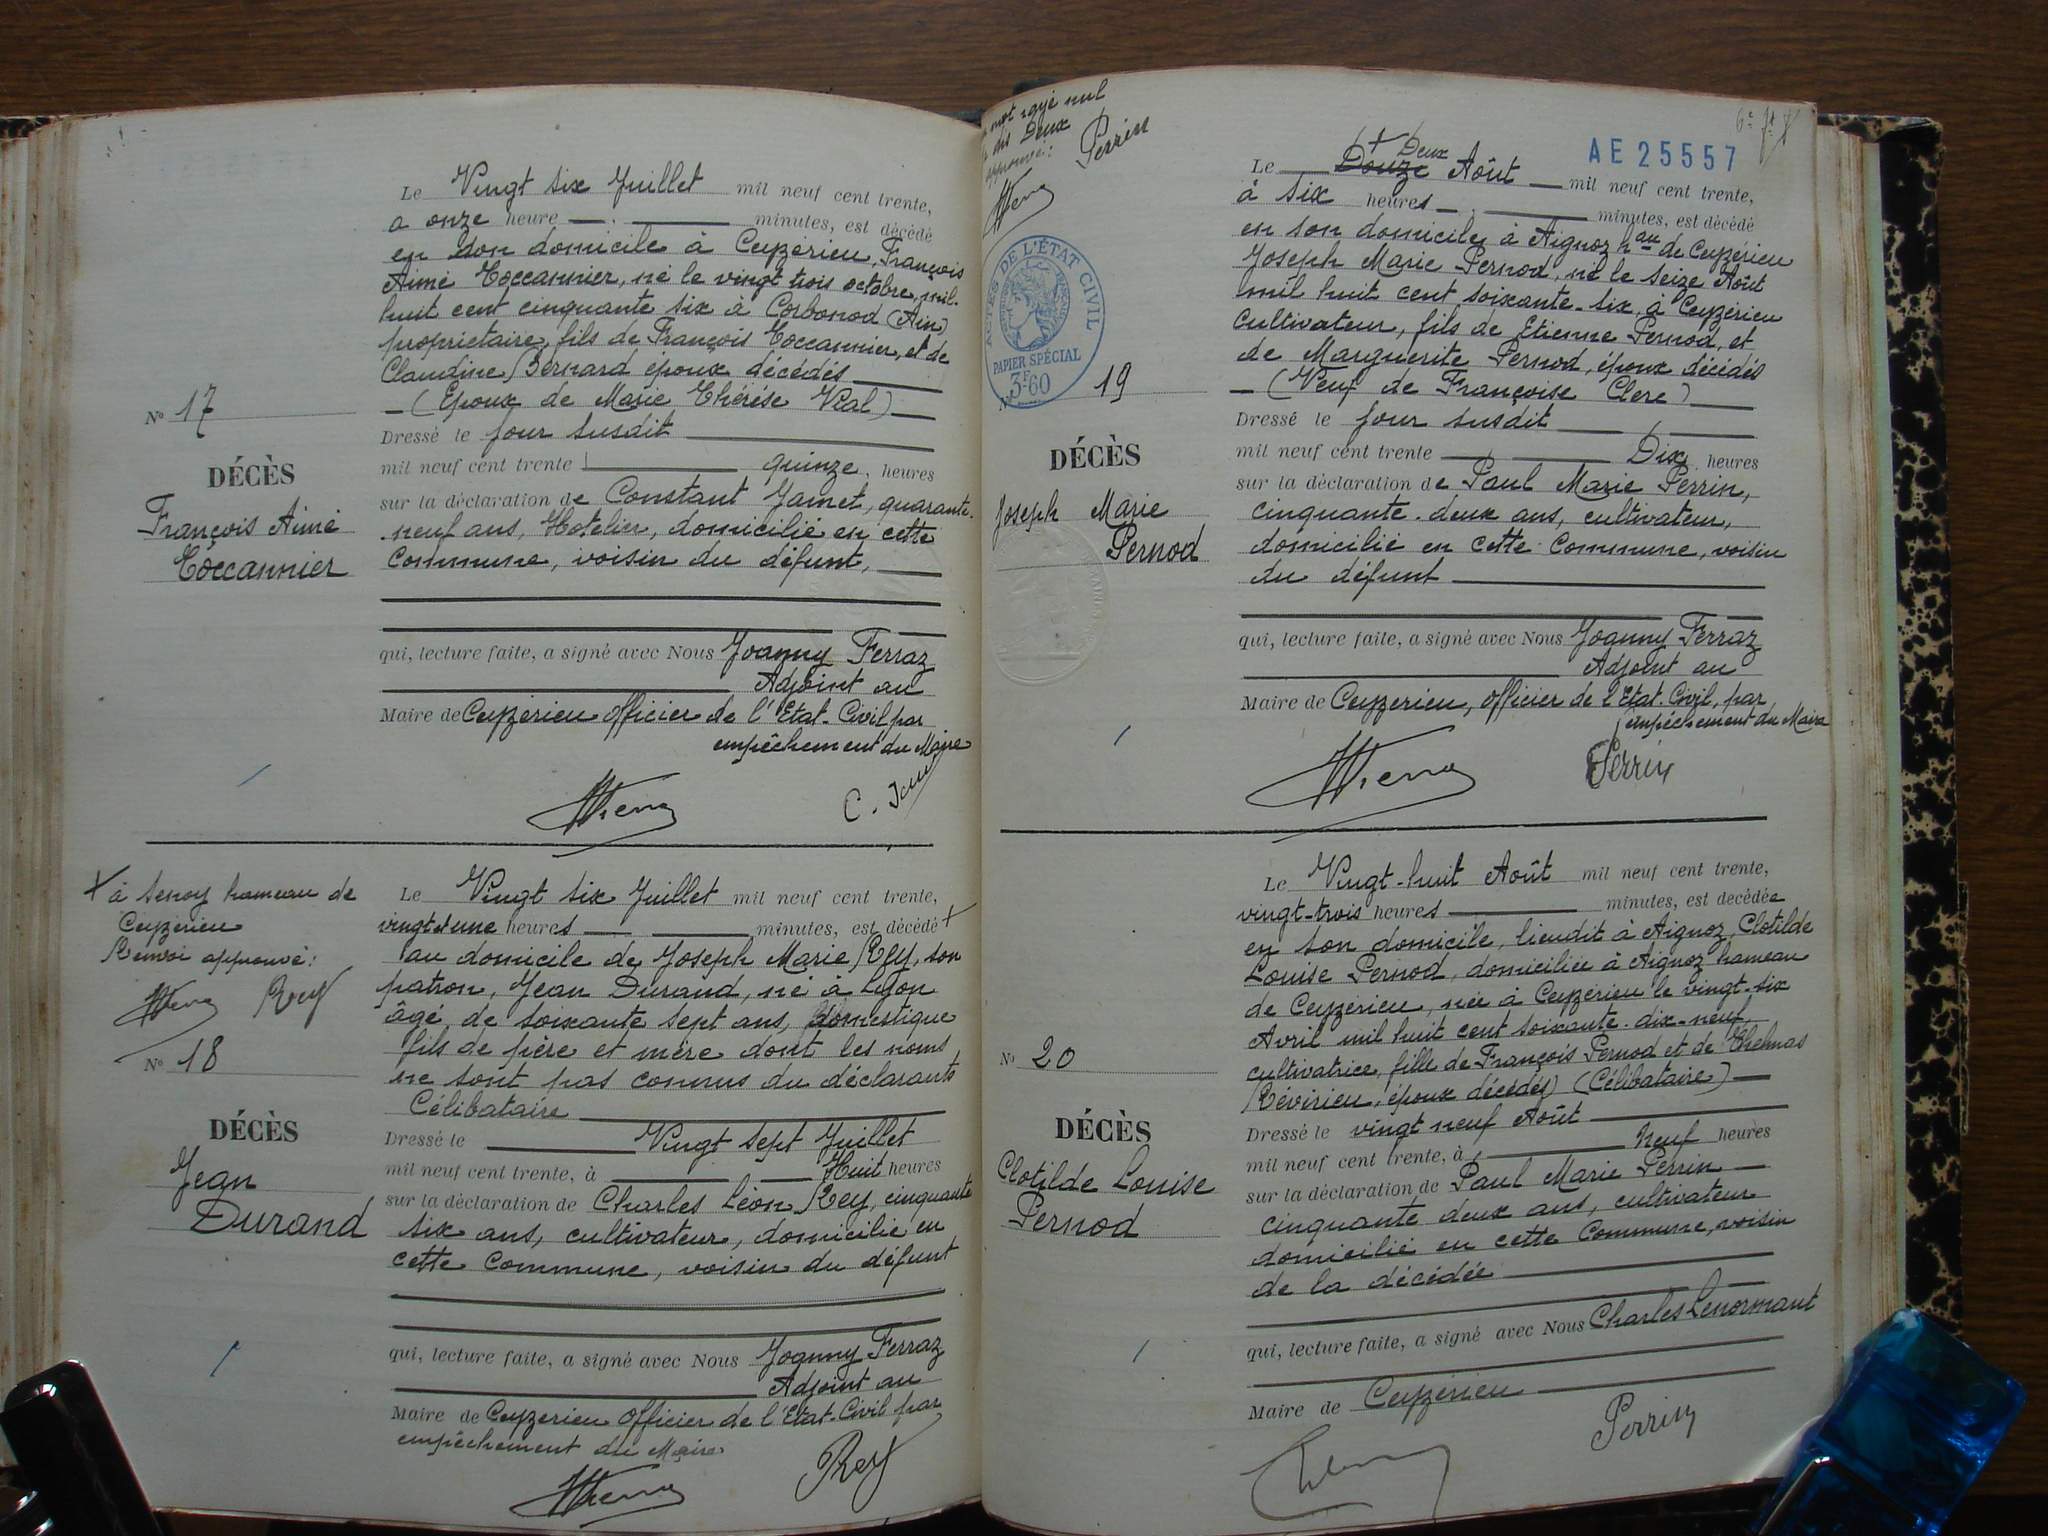 Le Vingt six Juillet mil neuf cent trente,
a onze heure minutes, est décédé
en son domicile à Ceyzérieu, François
Aimé Toccannier, né le vingt trois octobre, mil-
huit cent cinquante six à Corbonod (Ain)
propriétaire, fils de François Toccannier, et de
Claudine Bernard époux décédés
(Epoux de Marie Thérése Vial)
N° 17
DÉCÈS
François Aimé
Toccannier
Dressé le jour susdit
mil neuf cent trente quinze, heures
sur la déclaration de Constant Jamet, quarante-
neuf ans, Hotelier, domicilié en cette
Commune, voisin du défunt,
qui, lecture faite, a signé avec Nous Joanny Ferraz
Adjoint au
Maire de Ceyzérieu officier de l'Etat-Civil par
empêchement du Maire
C. Jamet
+ à Senoy hameau de
Ceyzérieu
Renvoi approuvé:
Rey
N° 18
DÉCÈS
Jean
Durand
Le Vingt six Juillet mil neuf cent trente,
vingt et une heures minutes, est décédé +
au domicile de Joseph Marie Rey, son
patron, Jean Durand, né à Lyon
âgé de soixante sept ans, domestique
fils de père et mère dont les noms
ne sont pas connus du déclarants
Célibataire
Dressé le Vingt sept Juillet
mil neuf cent trente, à Huit heures
sur la déclaration de Charles Léon Rey, cinquante
six ans, cultivateur, domicilié en
cette Commune, voisin du défunt
qui, lecture faite, a signé avec Nous Joanny Ferraz
Adjoint au
Maire de Ceyzerieu officier de l'Etat-Civil par
empêchement du Maire
Rey
mot rayé nul
dis Deux
approuvé:
Perrin
ACTES DE L'ÉTAT CIVIL
PAPIER SPÉCIAL
3F60
N° 19
DÉCÈS
Joseph Marie
Pernod
AE 25557
Le Douze + Deux Août mil neuf cent trente,
à six heures minutes, est décédé
en son domicile à Aignoz hau de Ceyzérieu
Joseph Marie Pernod, né le seize Août
mil huit cent soixante-six, à Ceyzérieu
Cultivateur, fils de Etienne Pernod, et
de Marguerite Pernod, époux décédés
(Veuf de Françoise Clerc)
Dressé le jour susdit
mil neuf cent trente Dix heures
sur la déclaration de Paul Marie Perrin,
cinquante-deux ans, cultivateur,
domicilié en cette Commune, voisin
du défunt
qui, lecture faite, a signé avec Nous Joanny Ferraz
Adjoint au
Maire de Ceyzerieu, officier de l'Etat-Civil, par
empêchement du Maire
Perrin
N° 20
DÉCÈS
Clotilde Louise
Pernod
Le Vingt-huit Août mil neuf cent trente,
vingt-trois heures minutes, est décédée
en son domicile, lieudit à Aignoz, Clotilde
Louise Pernod, domiciliée à Aignoz hameau
de Ceyzérieu, née à Ceyzérieu le vingt-six
Avril mil huit cent soixante-dix-neuf,
cultivatrice, fille de François Pernod et de Thelmas
Révirieu, époux décédés) (Célibataire)
Dressé le vingt neuf Août
mil neuf cent trente, à Neuf heures
sur la déclaration de Paul Marie Perrin
cinquante deux ans, cultivateur
domicilié en cette Commune, voisin
de la décédée
qui, lecture faite, a signé avec Nous Charles Lenormant
Maire de Ceyzérieu
Perrin